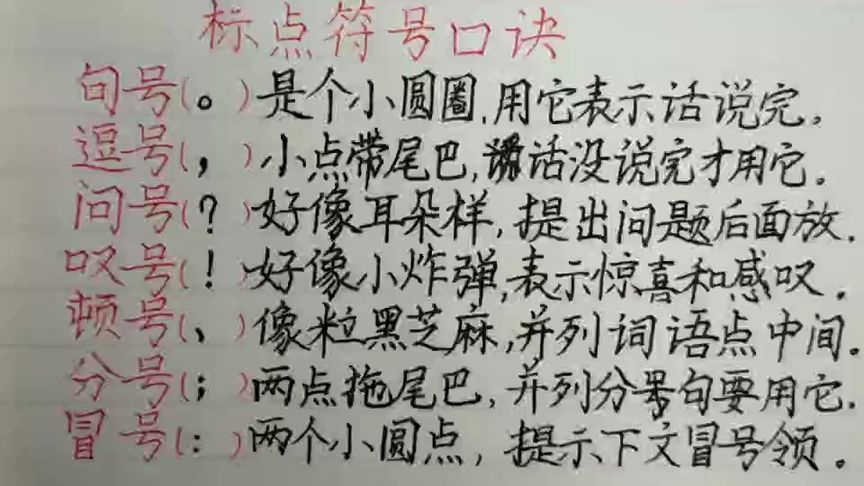 标点符号口诀
句号(。)是个小圆圈,用它表示话说完。
逗号(，)小点带尾巴,话没说完才用它。
问号(？)好像耳朵样,提出问题后面放.
叹号(！)好像小炸弹,表示惊喜和感叹.
顿号(、)像粒黑芝麻,并列词语点中间.
分号(；)两点拖尾巴,并列分号句要用它.
冒号(：)两个小圆点,提示下文冒号领。